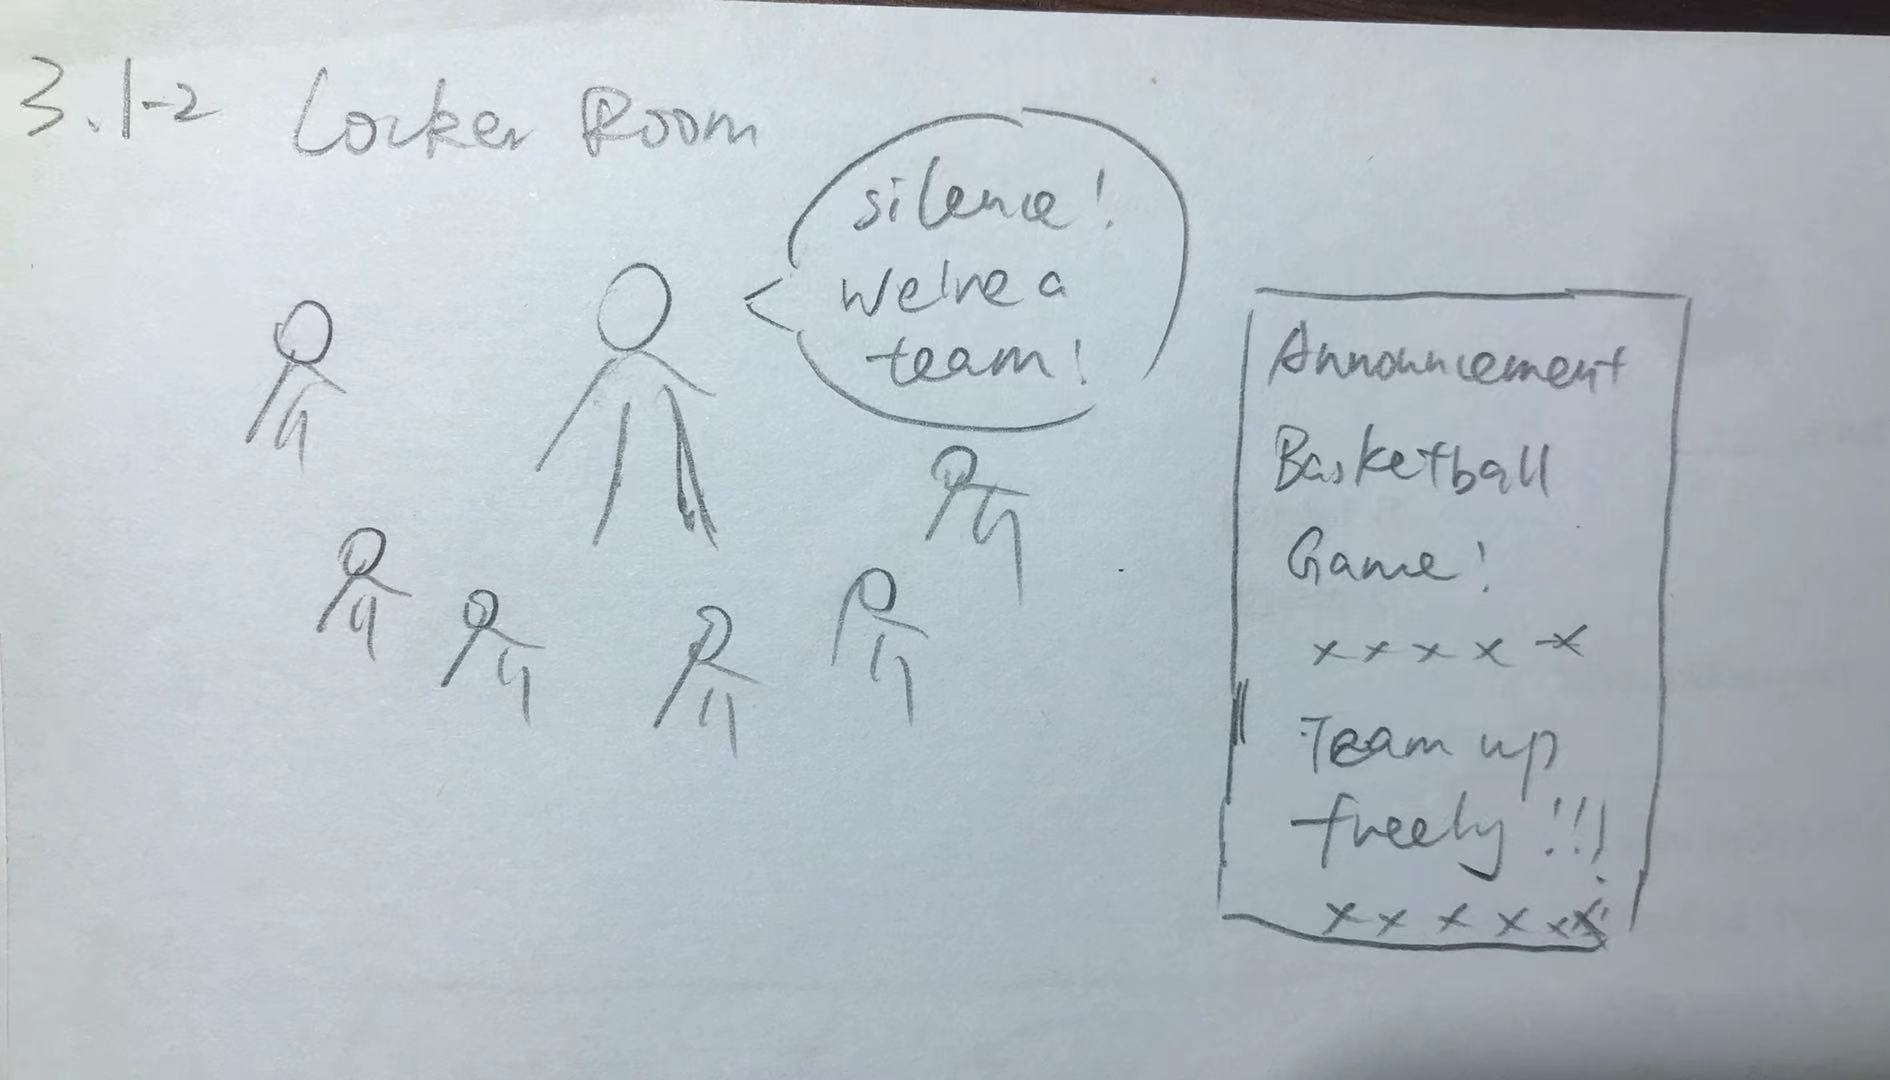 3.1-2 Locker Room
silence!
we're a
team!
Announcement
Basketball
Game!
x x x x x
Team up
freely!!!
x x x x x x